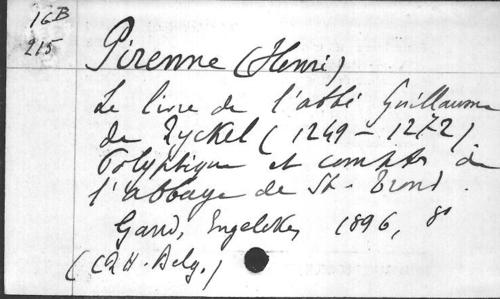 16B
215
Pirenne (Henri)
Le livre de l'abbé Guillaume
de Ryckel (1249-1272)
Polyptique et comptes de
l'abbaye de St-Trond.
Gand, Engelcke, 1896, 8°
(CRH. Belg.)